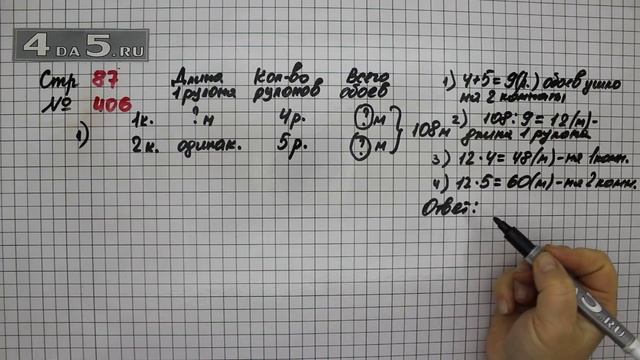 4 DA 5.RU
Стр 87
№ 406
1)
Длина Кол-во Всего
1 рулона рулонов обоев
1к. ? м 4р. ? м
2к. одинак. 5р. ? м
108м
1) 4+5=9(р.) обоев ушло
на 2 комнаты
2) 108:9=12(м)-
длина 1 рулона
3) 12·4=48(м)-на 1 комн.
4) 12·5=60(м)-на 2 комн.
Ответ: